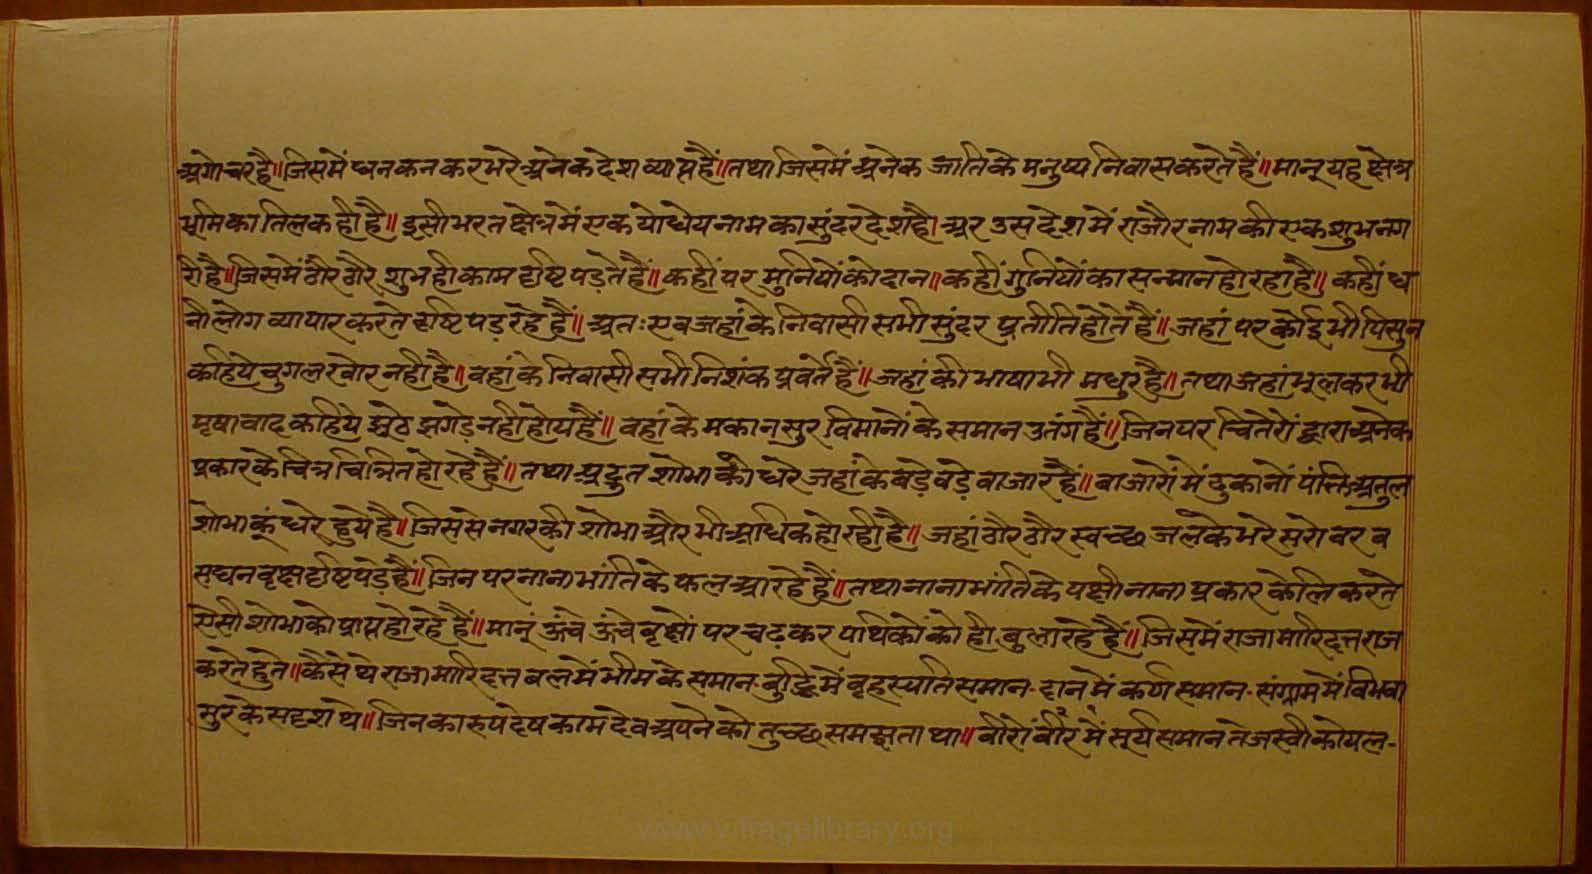 अगोचर है॥ जिसमें धन कनकर भरे अनेक देश व्याप्त हैं॥ तथा जिसमें अनेक जाति के मनुष्य निवास करते हैं॥ मानू यह क्षेत्र
भूमि का तिलक ही है॥ इसी भरत क्षेत्र में एक योधेय नाम का सुंदर देश है। अर उस देश में राजौर नाम की एक शुभ नग
री है॥ जिसमें ठौर ठौर शुभ ही काम दृष्टि पड़ते हैं॥ कहीं पर मुनियों को दान॥ कहीं गुनियों का सन्मान हो रहा है॥ कहीं ध
नी लोग व्यापार करते दृष्टि पड़ रहे हैं॥ अतःएव जहां के निवासी सभी सुंदर प्रतीति होते हैं॥ जहां पर कोई भी पिसुन
कहिये चुगलखोर नही है॥ वहां के निवासी सभी निशंक प्रवर्ते हैं॥ जहां की भाषा भी मधुर है॥ तथा जहां भूलकर भी
मृषावाद कहिये झूठे झगड़े नही होय हैं॥ वहां के मकान सुर विमानों के समान उतंग हैं॥ जिन पर चितेरों द्वारा अनेक
प्रकार के चित्र चित्रित हो रहे हैं॥ तथा अद्भुत शोभा को धरे जहां के बड़े बड़े बाजार हैं॥ बाजारों में दुकानों पंक्ति अतुल
शोभा कूं धरे हुये है॥ जिससे नगर की शोभा और भी अधिक हो रही है॥ जहां ठौर ठौर स्वच्छ जल के भरे सरोवर व
सघन वृक्ष दृष्टि पड़े हैं॥ जिन पर नाना भांति के फल आ रहे हैं॥ तथा नाना भांति के पक्षी नाना प्रकार केलि करते
ऐसी शोभा को प्राप्त हो रहे हैं॥ मानूं ऊंचे ऊंचे वृक्षों पर चढ़कर पथिकों को ही बुला रहे हैं॥ जिसमें राजा मारिदत्त राज
करते हुते॥ कैसे थे राजा मारिदत्त बल में भीम के समान- बुद्धि में वृहस्पति समान- दान में कर्ण समान- संग्राम में
सुर के सदृश थे॥ जिनका रुप देष कामदेव अपने को तुच्छ समझता था॥ वीरों वीर में सूर्य समान तेजस्वी कोयल-
www.vitragelibrary.org